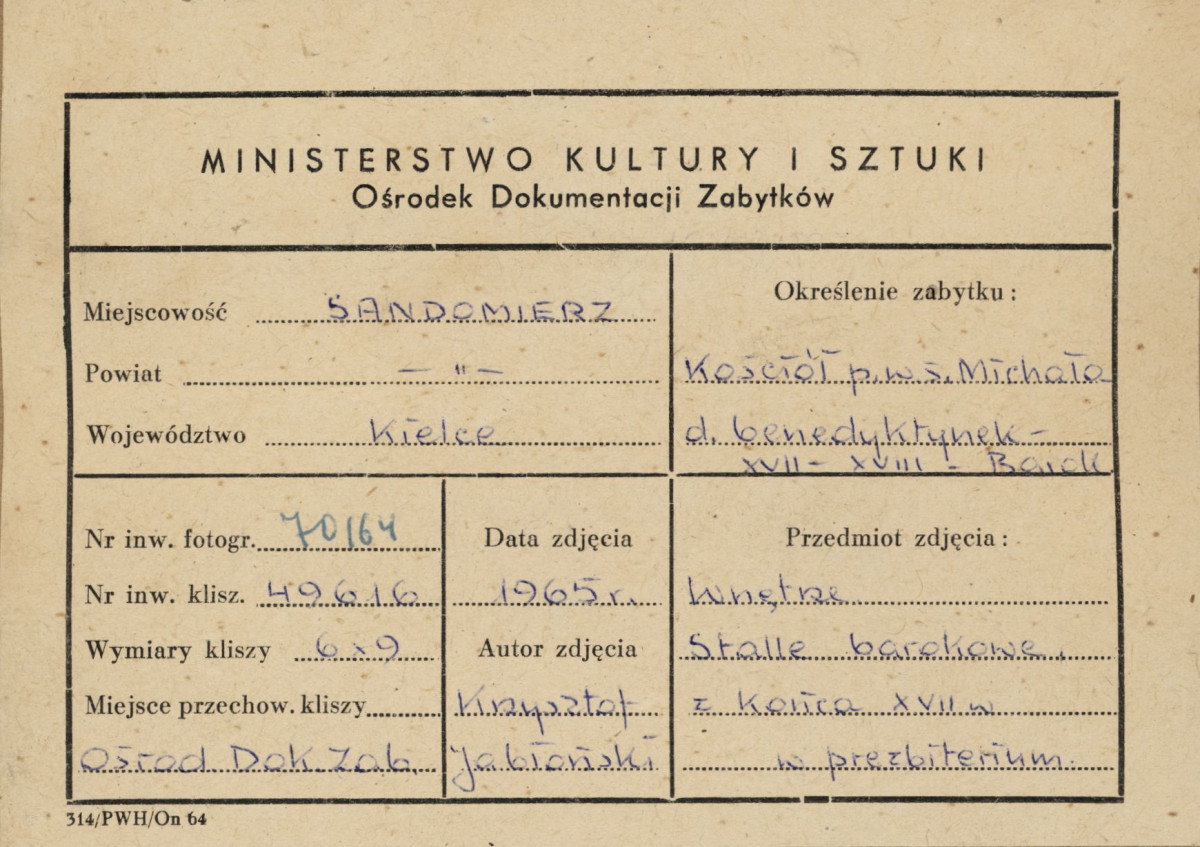 MINISTERSTWO KULTURY I SZTUKI
Ośrodek Dokumentacji Zabytków
Miejscowość SANDOMIERZ
Powiat — " —
Województwo Kielce
Określenie zabytku:
Kościół p.w. ś. Michała
d. benedyktynek -
XVII - XVIII - Barok
Nr inw. fotogr. 70/64
Nr inw. klisz. 49616
Wymiary kliszy 6x9
Miejsce przechow. kliszy
Ośrod Dok. Zab.
Data zdjęcia
1965 r.
Autor zdjęcia
Krzysztof
Jabłoński
Przedmiot zdjęcia:
Wnętrze
Stalle barokowe,
z końca XVII w
w prezbiterium.
314/PWH/On 64